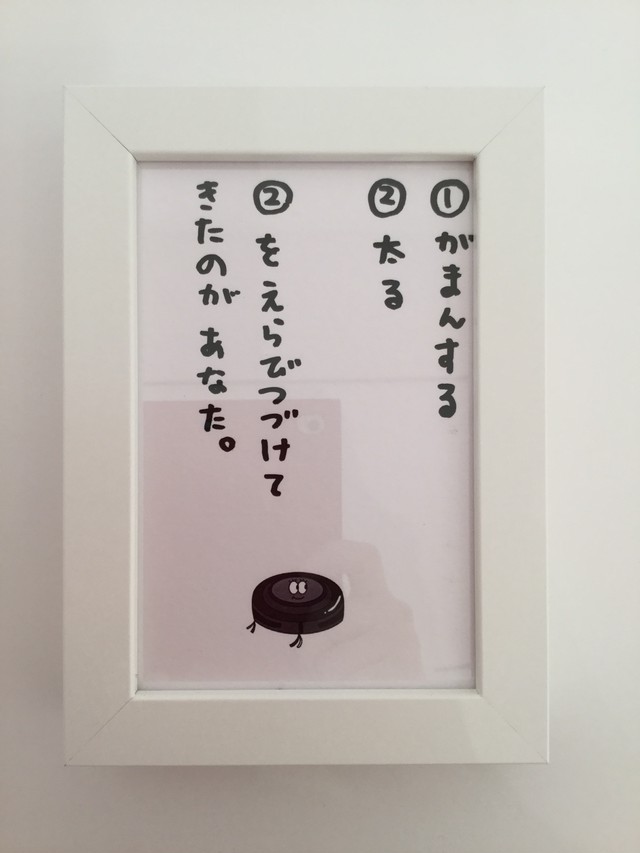 ①がまんする
②太る
②をえらびつづけて
きたのが あなた。